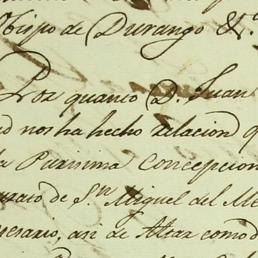 Obispo de Durango &c.
Por quanto D. Juan
nos ha hecho relacion q
la Purisima Concepcion
de Sn. Miguel del Me
asi de Altar como d